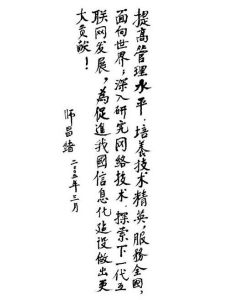 提高管理水平,培養技术精英,服務全国,
面向世界;深入研究网络技术,探索下一代互
联网发展,為促進我國信息化建设做出更
大贡献!
师昌绪
二〇〇五年三月